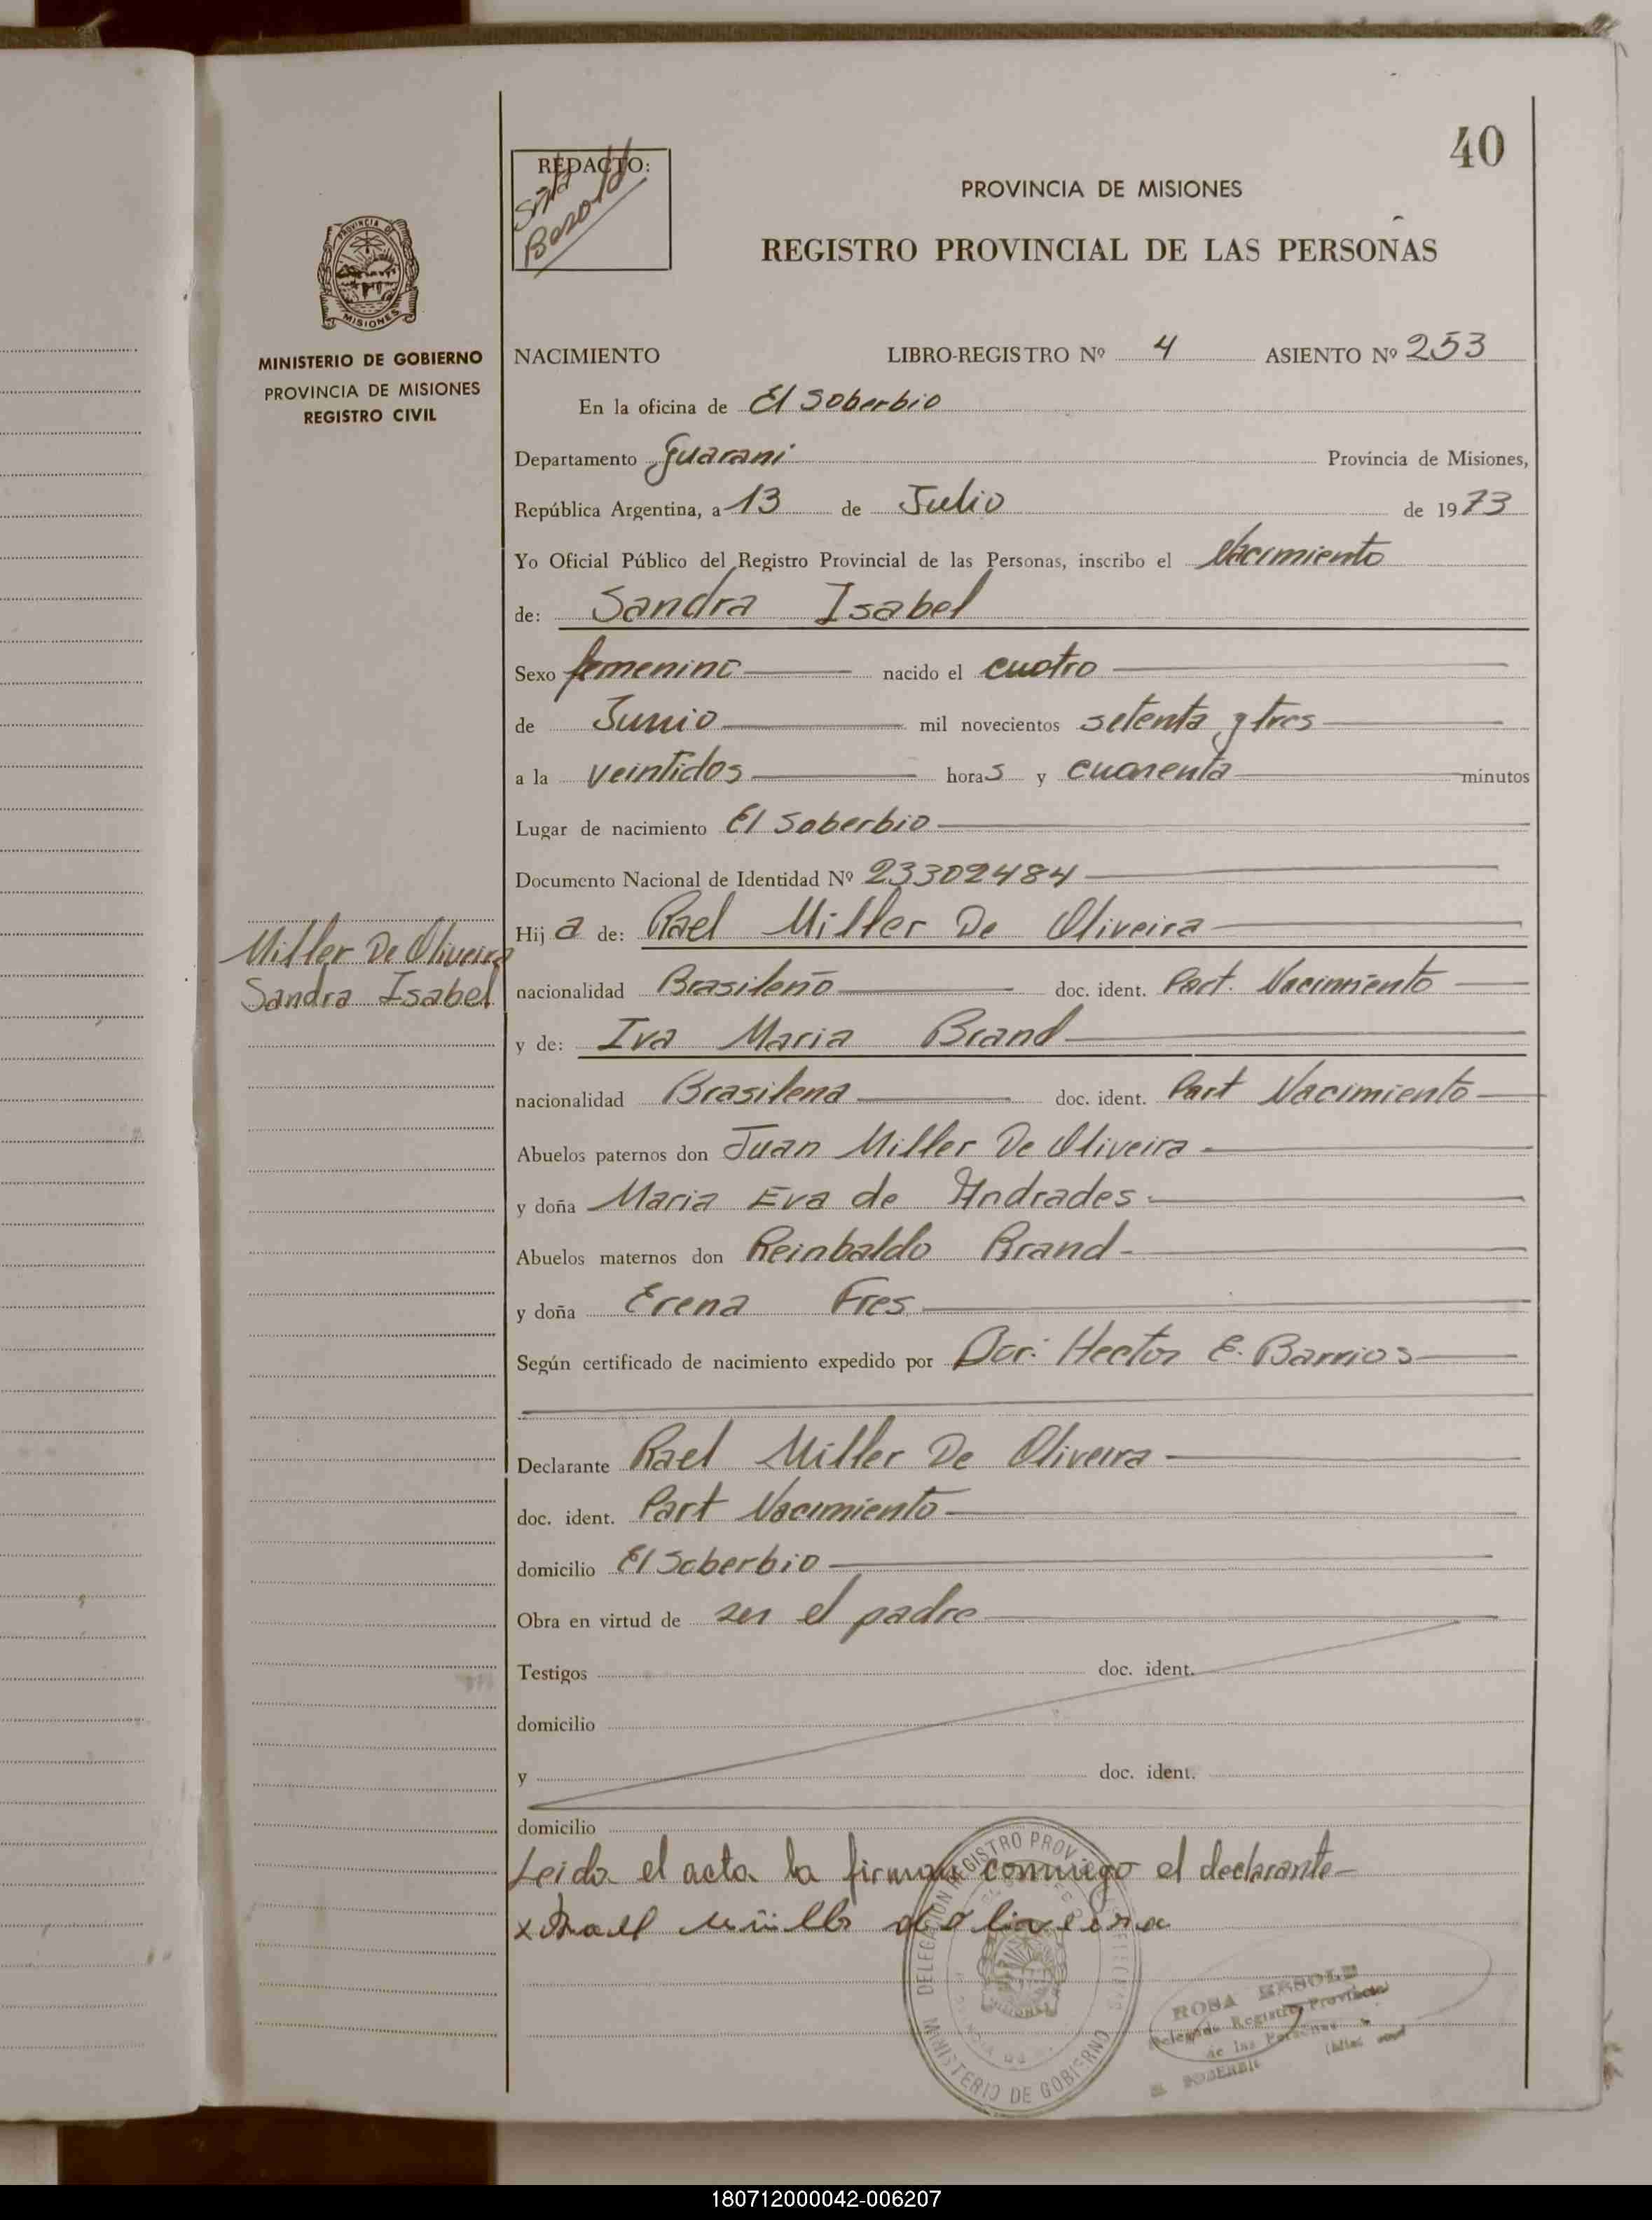 40
REDACTO:
PROVINCIA DE MISIONES
REGISTRO PROVINCIAL DE LAS PERSONAS
PROVINCIA DE
MISIONES
MINISTERIO DE GOBIERNO
PROVINCIA DE MISIONES
REGISTRO CIVIL
NACIMIENTO LIBRO-REGISTRO Nº 4 ASIENTO Nº 253
En la oficina de El Soberbio
Departamento Guarani Provincia de Misiones,
República Argentina, a 13 de Julio de 1973
Yo Oficial Público del Registro Provincial de las Personas, inscribo el Nacimiento
de: Sandra Isabel
Sexo femenino nacido el cuatro
de Junio mil novecientos setenta y tres
a la veintidos horas y cuarenta minutos
Lugar de nacimiento El Soberbio
Documento Nacional de Identidad Nº 23302484
Miller De Oliveira
Sandra Isabel
Hija de: Rael Miller De Oliveira
nacionalidad Brasileño doc. ident. Part. Nacimiento
y de: Iva Maria Brand
nacionalidad Brasilena doc. ident. Part Nacimiento
Abuelos paternos don Juan Miller De Oliveira
y doña Maria Eva de Andrades
Abuelos maternos don Reinbaldo Brand
y doña Erena Fres
Según certificado de nacimiento expedido por Dor. Hector E. Barrios
Declarante Rael Miller De Oliveira
doc. ident. Part Nacimiento
domicilio El Soberbio
Obra en virtud de ser el padre
Testigos doc. ident.
domicilio
y doc. ident.
domicilio
Leida el acta la firman conmigo el declarante
DELEGACION REGISTRO PROV
MINISTERIO DE GOBIERNO
ROSA
Delegada Registro Provincial
de las Personas
180712000042-006207